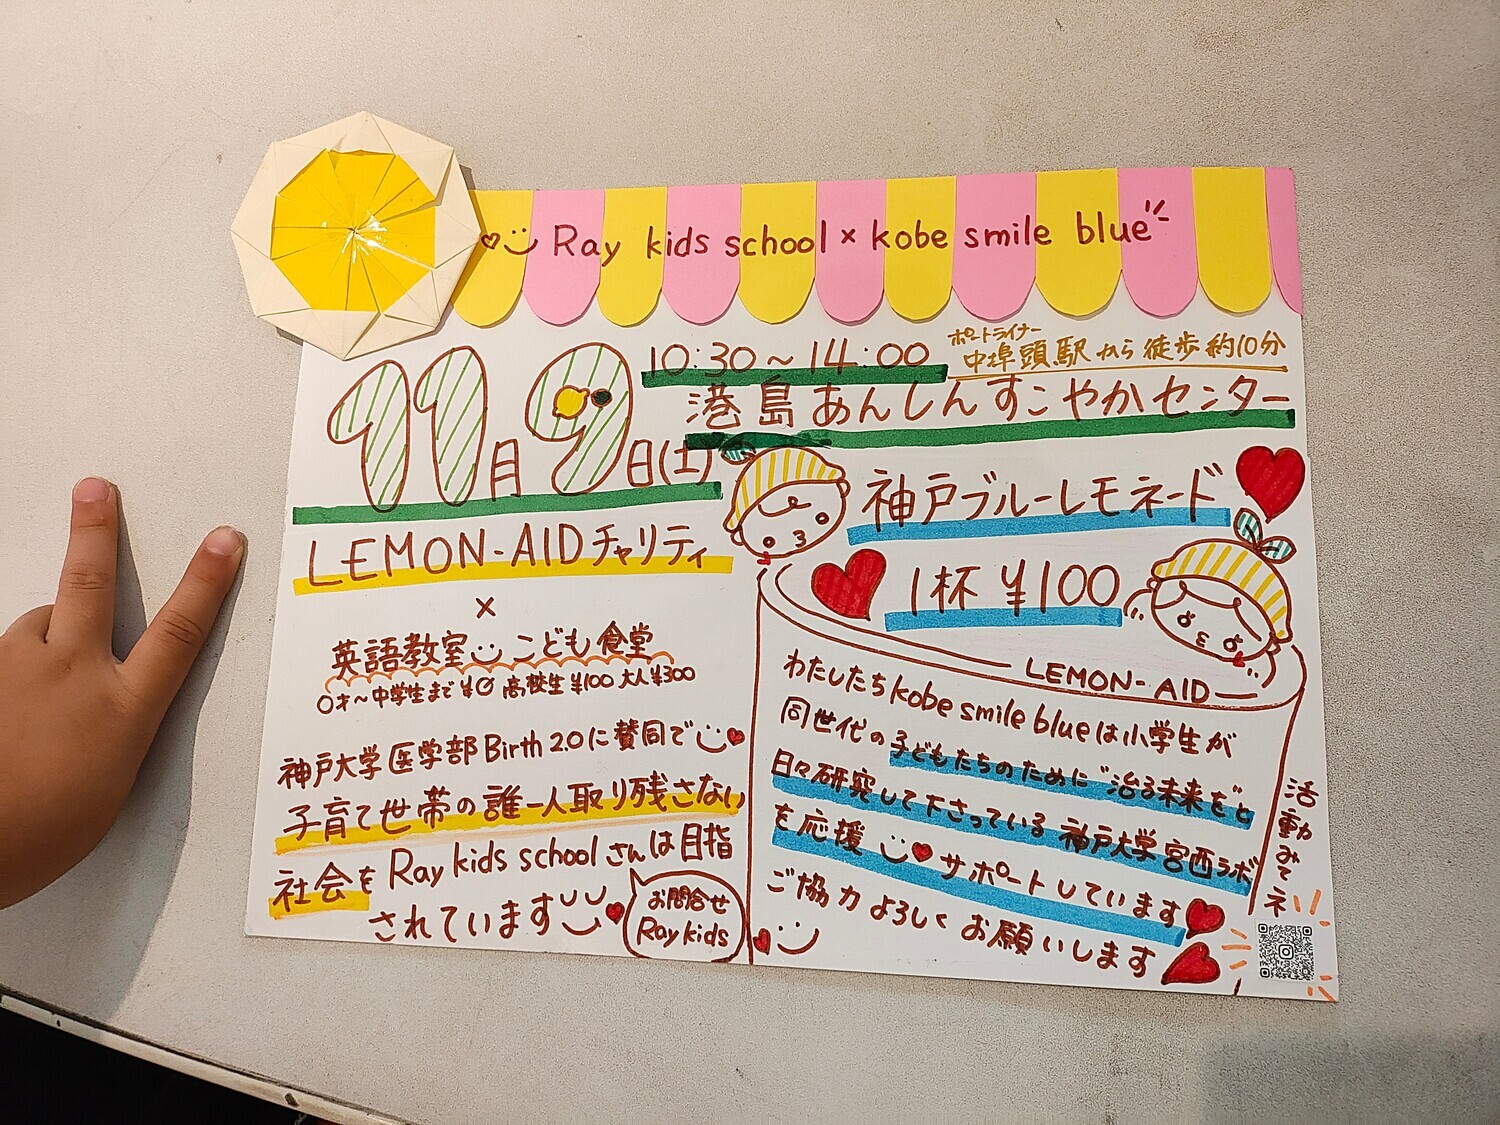 Ray kids school × kobe smile blue
11月9日(土)
10:30～14:00
ポートライナー
中埠頭駅から徒歩約10分
港島あんしんすこやかセンター
LEMON-AIDチャリティ
×
英語教室 こども食堂
0才～中学生まで¥0 高校生¥100 大人¥300
神戸大学医学部Birth 2.0に賛同で
子育て世帯の誰一人取り残さない
社会をRay kids schoolさんは目指
されています
お問合せ
Ray kids
神戸ブルーレモネード
1杯 ¥100
LEMON-AID
わたしたちkobe smile blueは小学生が
同世代の子どもたちのために"治る未来を"と
日々研究して下さっている神戸大学宮西ラボ
を応援 サポートしています
ご協力よろしくお願いします
活動みてネ